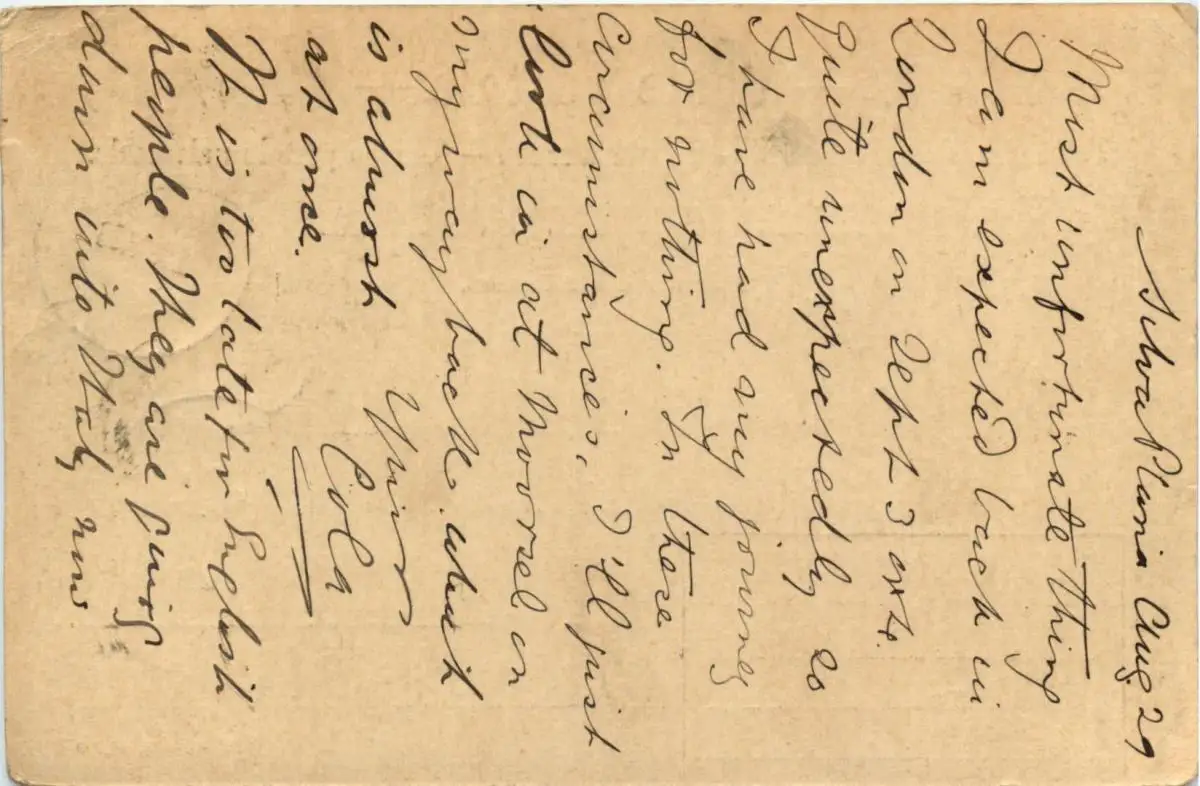 Silva Plana Aug 29
Most unfortunate thing
I am expected back in
London on Sept 3 or 4.
Quite unexpectedly so
I have had my journey
for nothing. In these
Circumstances, I'll just
look in at Moorsel on
my way back. which
is almost
at once.
Your
Cola
It is too late for English
people. They are going
down into Italy now